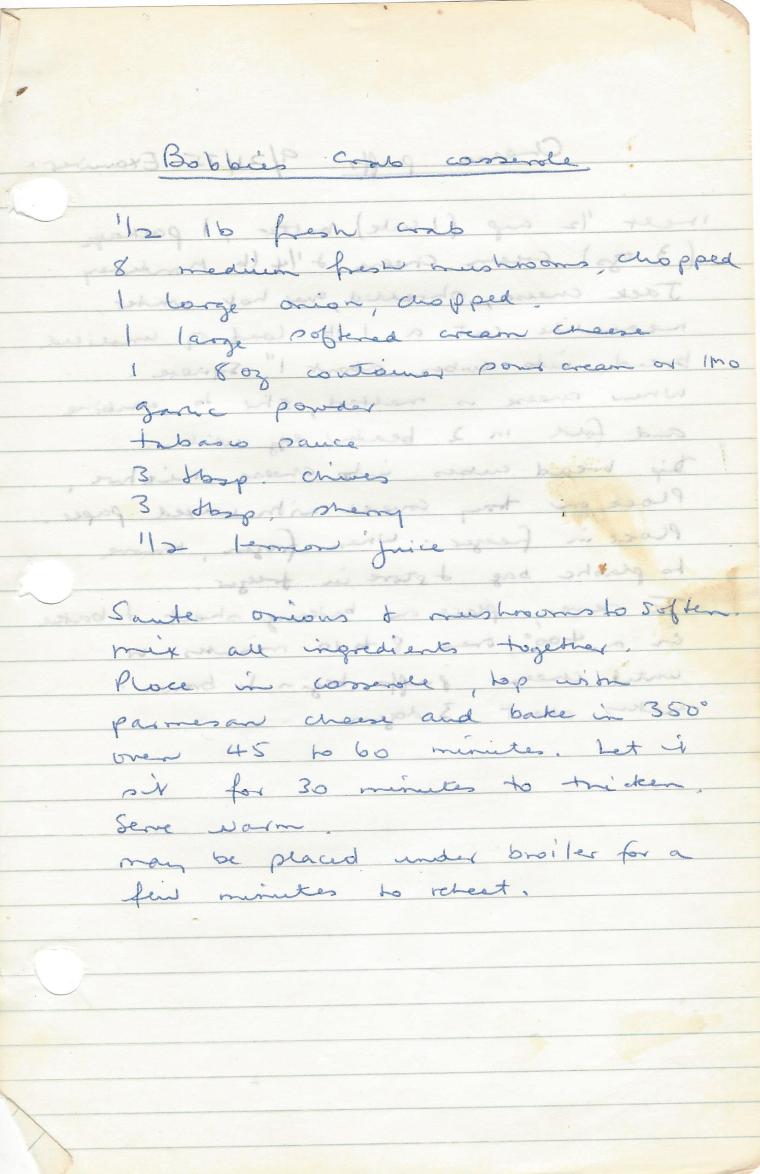 Bobbies crab casserole
1/2 lb fresh crab
8 medium fresh mushrooms, chopped
1 large onion, chopped.
1 large softened cream cheese
1 8oz container sour cream or IMO
garlic powder
tabasco sauce
3 tbsp. chives
3 tbsp. sherry
1/2 lemon juice
Saute onions & mushrooms to soften.
mix all ingredients together.
Place in casserole, top with
parmesan cheese and bake in 350°
oven 45 to 60 minutes. Let it
sit for 30 minutes to thicken.
Serve warm.
may be placed under broiler for a
few minutes to reheat.